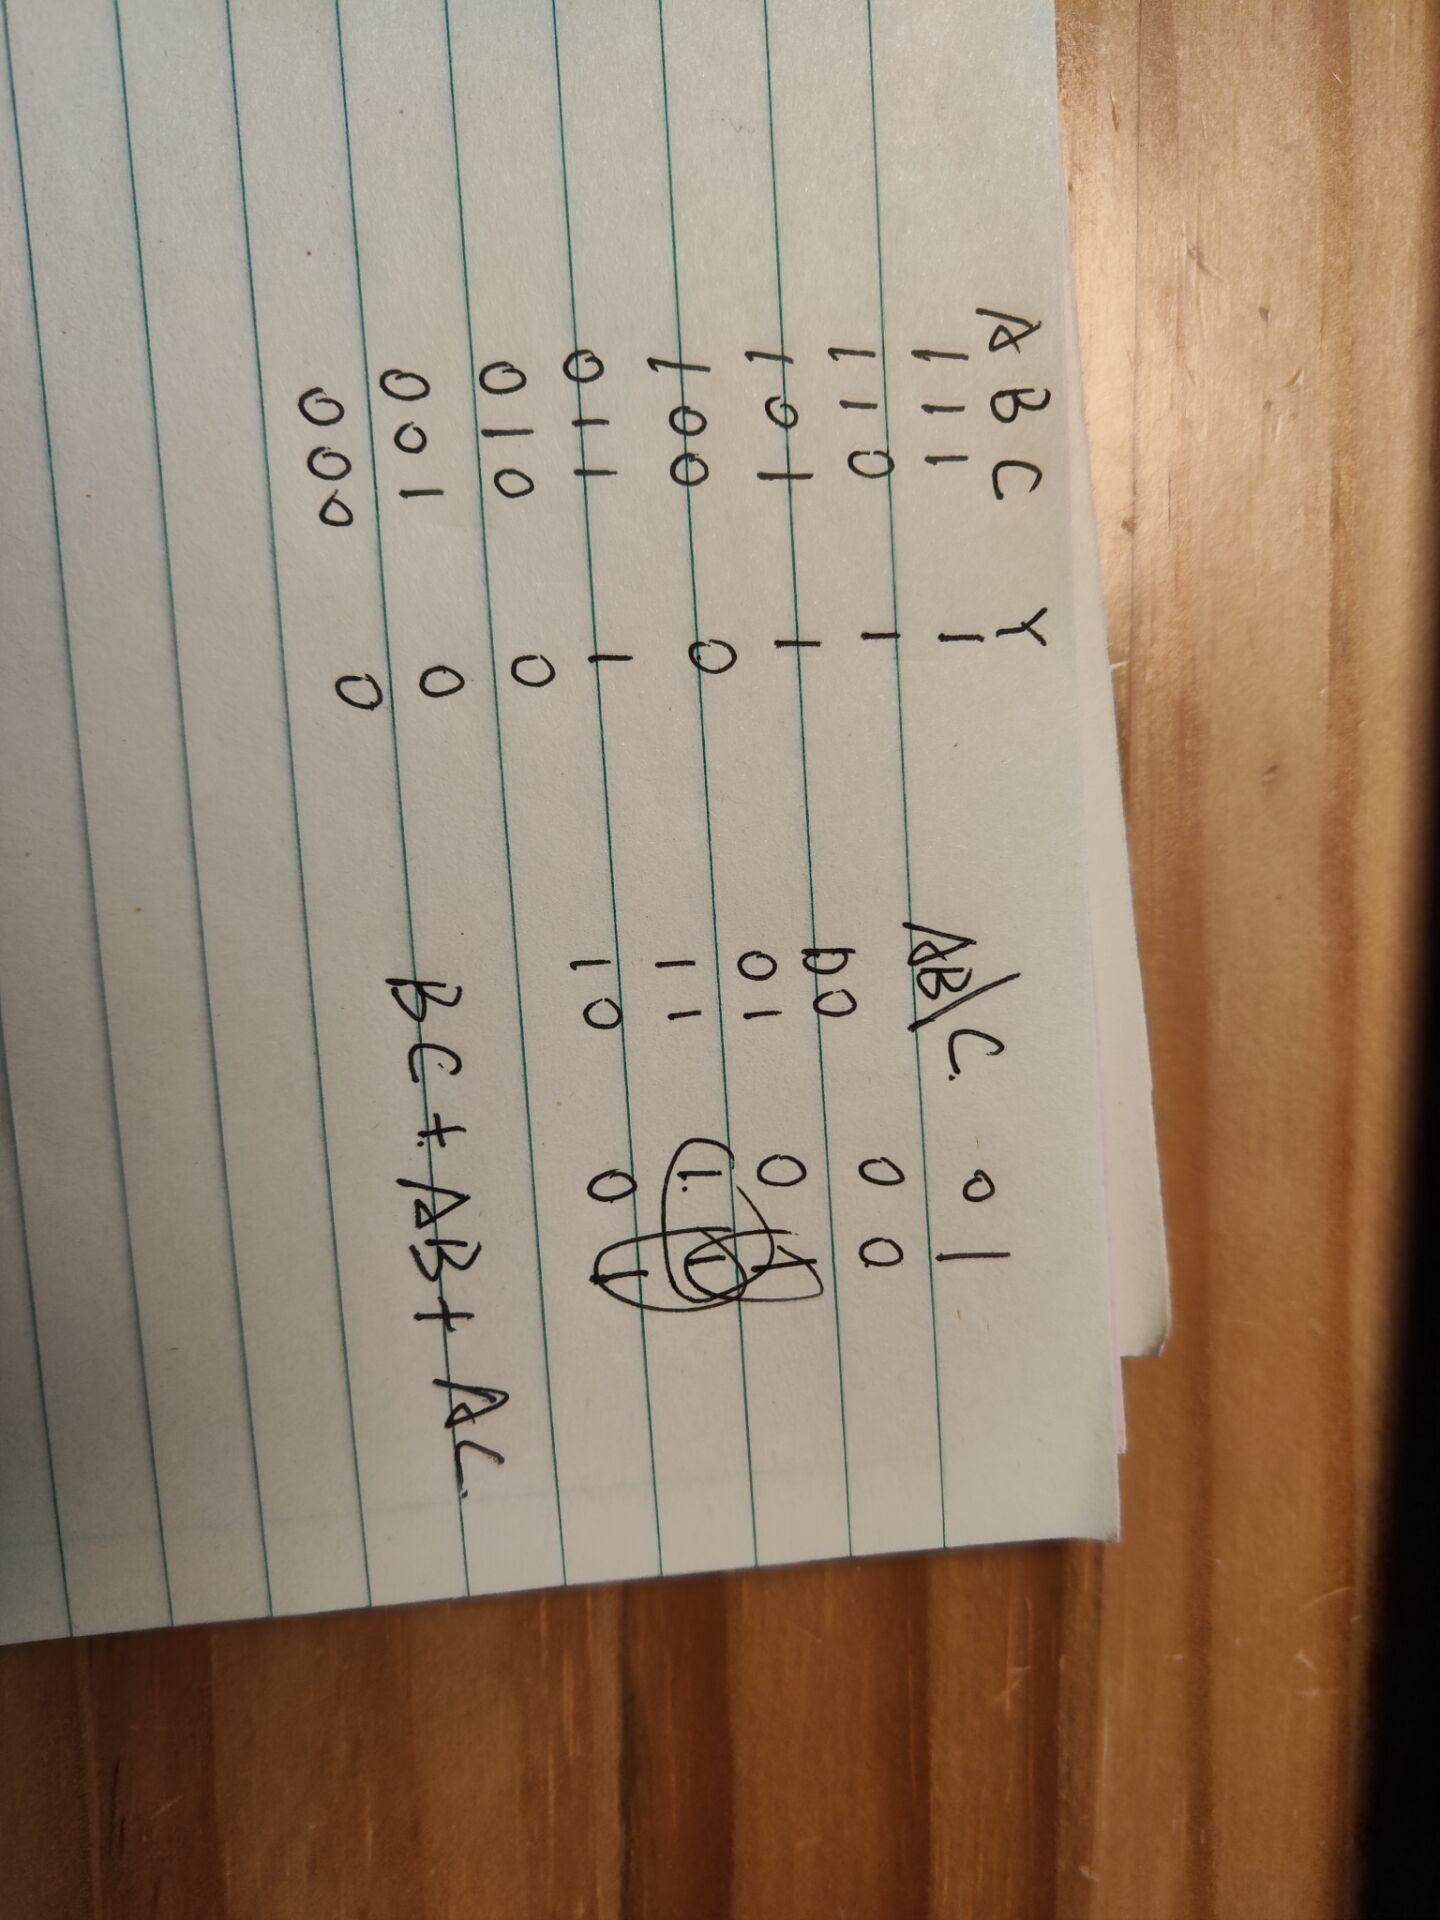 A B C Y
1 1 1 1
1 1 0 1
1 0 1 1
1 0 0 0
0 1 1 1
0 1 0 0
0 0 1 0
0 0 0 0
AB/C 0 1
00 0 0
01 0 1
11 1 1
10 0 1
BC+AB+AC